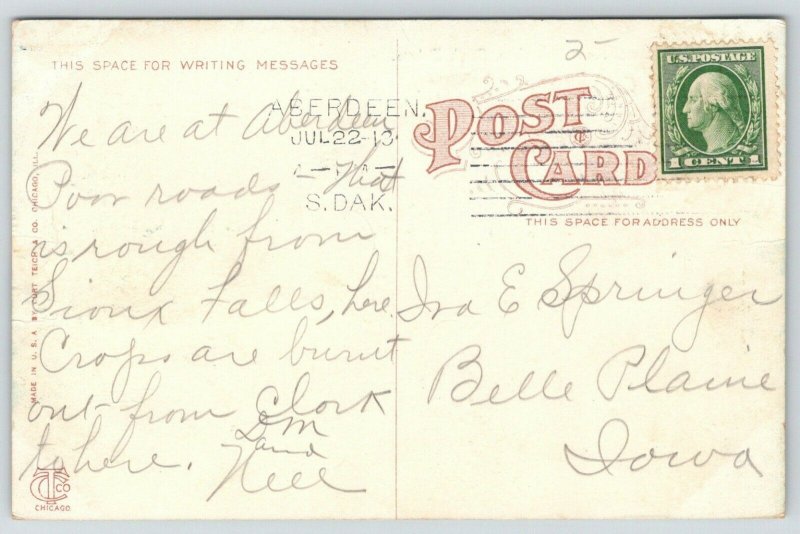 THIS SPACE FOR WRITING MESSAGES
2-
ABERDEEN,
JUL 22-13
S. DAK.
POST CARD
U.S. POSTAGE
1 CENT 1
THIS SPACE FOR ADDRESS ONLY
We are at Aberdeen
Poor roads that
is rough from
Sioux Falls, here
Crops are burnt
out from Clark
to here.
D M
and
Nell
Ira E Springer
Belle Plaine
Iowa
MADE IN U.S.A. BY CURT TEICH & CO. CHICAGO, ILL.
CT CO
CHICAGO